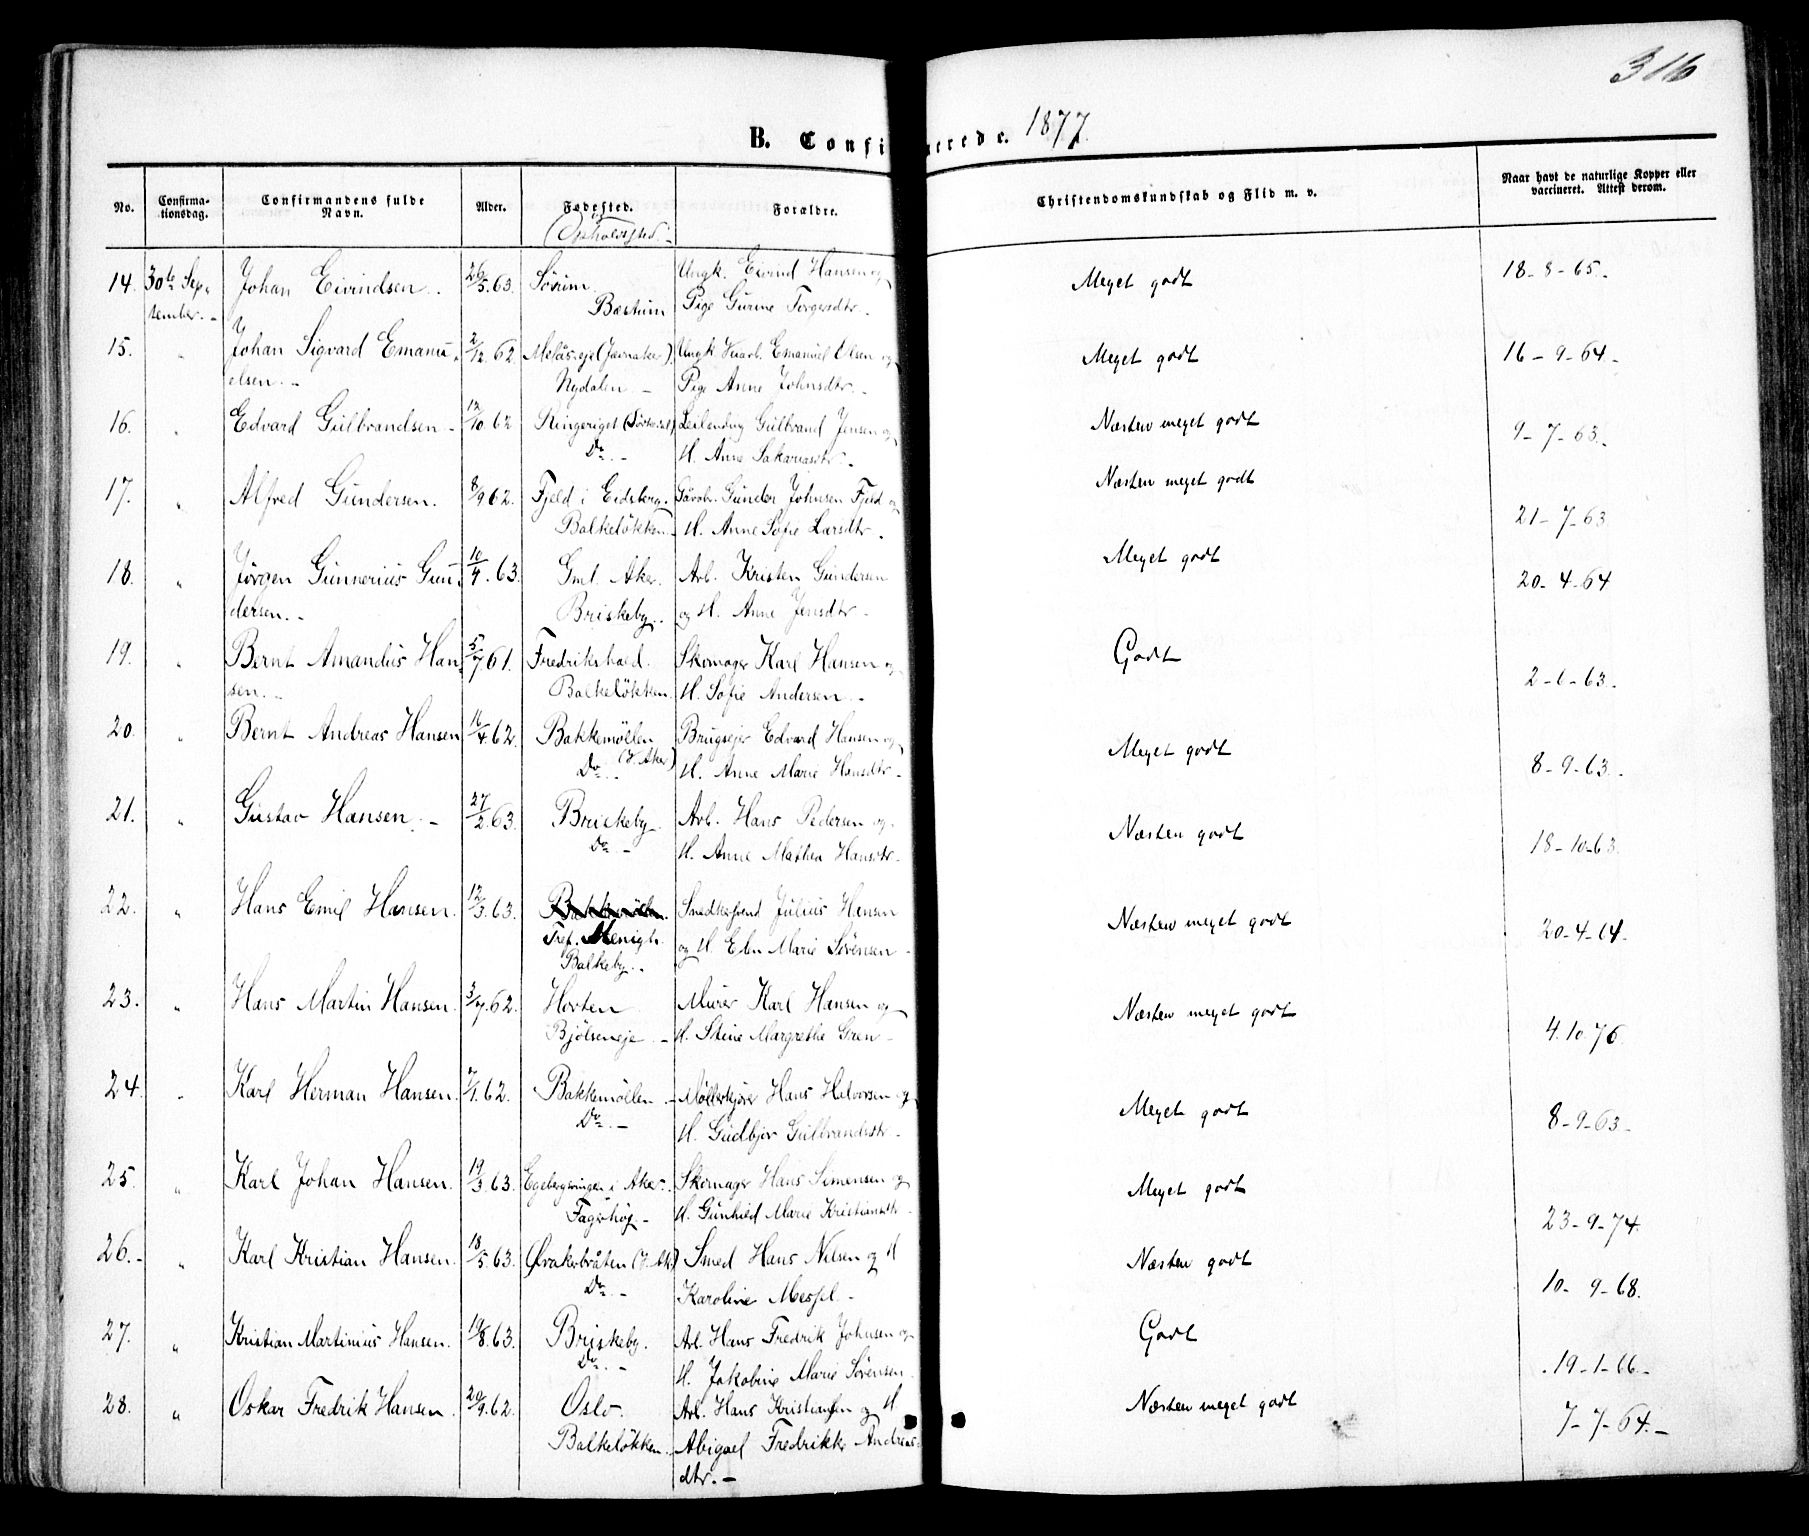 316
B. Confirmerede. 1877.
No. Confirmationsdag. Confirmandens fulde Navn. Alder. Fødested. (Opholdssted.) Forældre. Christendomskundskab og Flid m. v. Naar havt de naturlige Kopper eller vaccineret. Attest derom.
14. 30te Sep- Johan Eivindsen. 26/5.63. Sörum. Ungk. Eivind Hansen og Meget godt 18-8-65.
tember. Bærum Pige Gurine Torgersdtr.
15. " Johan Sigvard Emanu- 2/12.62. (Jævnaker) Ungk. Emanuel Olsen og Meget godt 16-9-64.
elsen. Nydalen Pige Anne Johnsdtr.
16. " Edvard Gulbrandsen 12/10.62 Ringeriget Leilending Gulbrand Jensen og Næsten meget godt 9-7-63.
Do. H. Anne Sakariasdtr.
17. " Alfred Gundersen. 8/9.62. Fjeld i Eidsberg Gunder Johnsen Fjeld og Næsten meget godt 21-7-63
Balkeløkken H. Anne Sofie Larsdtr.
18. " Jørgen Gunnerius Gun- 10/4.63. Gml. Aker. Arb. Kristen Gundersen Meget godt 20-4-64
dersen. Briskeby. og H. Anne Jensdtr.
19. " Bernt Amandus Han- 5/7.61. Fredrikshald. Skomager Karl Hansen og Godt 2-6-63.
sen. Balkeløkken H. Sofie Andersen
20. " Bernt Andreas Hansen 16/4.62. Bakkemøllen (V. Aker) Brugsejer Edvard Hansen og Meget godt 8-9-63.
Do. H. Anne Marie Hansdtr.
21. " Gustav Hansen. 27/2.63. Briskeby Arb. Hans Pedersen og Næsten godt 18-10-63.
Do. H. Anne Mathea Hansdtr.
22. " Hans Emil Hansen. 12/3.63. Bakkemøllen. Smedkersvend Julius Hansen Næsten meget godt 20-4-64.
Tref. Menigh. og H. Elen Marie Sörensen
Balkeby.
23. " Hans Martin Hansen. 3/7.62. Horten Murer Karl Hansen og Næsten meget godt 4.10.76
Bjölseneje H. Stine Margrethe Gren
24. " Karl Herman Hansen. 2/1.62. Bakkemøllen Møllerkjører Hans Halvorsen og Meget godt 8-9-63
Do. H. Gudbjør Gulbrandsdtr.
25. " Karl Johan Hansen. 19/3.63. i Aker. Skomager Hans Simensen og Meget godt 23-9-74
Fagerhøj H. Gunhild Marie Kristiansdtr.
26. " Karl Kristian Hansen. 18/5.63. Øvrakerbråten (V. Ak) Smed Hans Nilsen og H Næsten godt 10-9-68.
Do. Karoline
27. " Kristian Martinius Hansen. 19/8.63. Briskeby. Arb. Hans Fredrik Johnsen og Godt 19-1-66
Do. H. Jakobine Marie Sörensen
28. " Oskar Fredrik Hansen. 20/9.62. Oslo. Arb. Hans Kristiansen og H. Næsten meget godt 7-7-64.
Balkeløkken Abigael Fredrikke Andreas-
dtr.